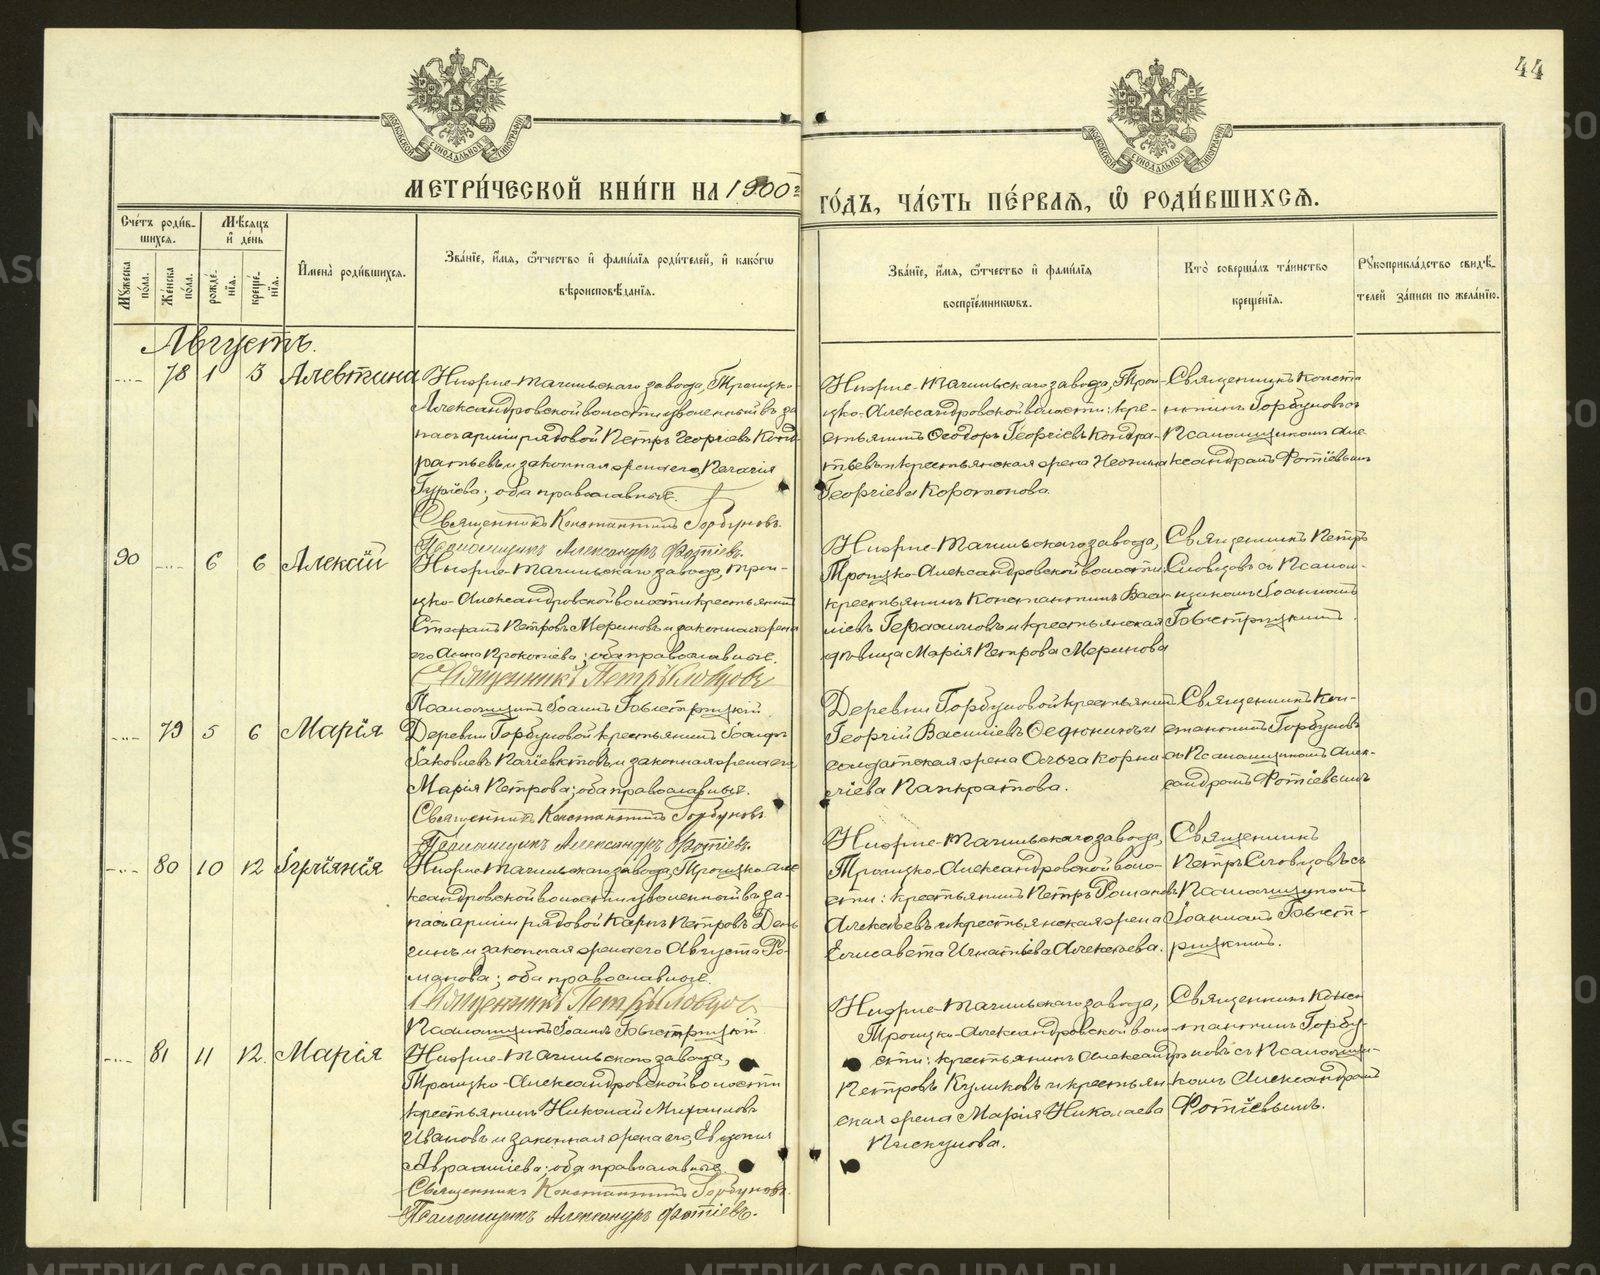 44
МОСКОВСКОЙ СѴНОДАЛЬНОЙ ТИПОГРАФІИ
МОСКОВСКОЙ СѴНОДАЛЬНОЙ ТИПОГРАФІИ
МЕТРИ́ЧЕСКОЙ КНИ́ГИ НА 1900 ГО́ДЪ, ЧА́СТЬ ПЕ́РВАЯ, Ѡ҆ РОДИ́ВШИХСЯ.
Сче́тъ роди́в-
шихся.
Мѣ́сяцъ
и҆ де́нь
Мꙋ́жеска по́ла.
Же́нска по́ла.
рожде́нїя.
креще́нїя.
И҆мена̀ роди́вшихся.
Зва́нїе, и҆́мя, ѻ҆́тчество и҆ фами́лїя роди́телей, и҆ како́гѡ
вѣроисповѣ́данїя.
Зва́нїе, и҆́мя, ѻ҆́тчество и҆ фами́лїя
воспрїе́мникѡвъ.
Кто̀ соверша́лъ та́инство
креще́нїя.
Рꙋкоприкла́дство свидѣ́-
телей за́писи по жела́нїю.
Августъ.
.... 78 1 5 Алевтина
Нижне-Тагильскаго завода, Троицко-
Александровской волости уволенный въ за
пасъ арміи рядовой Петръ Георгіевъ Конд
ратьевъ и законная жена его, Пелагія
Гуріева; оба православные.
Священникъ Константинъ Горбуновъ.
Псаломщикъ Александръ Фотіевъ.
Нижне-Тагильскаго завода, Трои-
цко-Александровской волости: кре-
стьянинъ Ѳеодоръ Георгіевъ Кондра-
тьевъ и крестьянская жена
Георгіева Коротонова.
Священникъ Конста
нтинъ Горбуновъ съ
Псаломщикомъ Але
ксандромъ Фотіевымъ
90 .... 6 6 Алексій
Нижне-Тагильскаго завода, Трои-
цко-Александровской волости крестьянинъ
Стефанъ Петровъ Мериновъ и законная жена
его Анна Прокопіева; оба православные.
Священникъ Петръ Словцовъ
Псаломщикъ Іоаннъ Быстрицкій.
Нижне-Тагильскаго завода,
Троицко-Александровской волости:
крестьянинъ Константинъ Васи-
ліевъ Герасимовъ и крестьянская
дѣвица Марія Петрова Меринова
Священникъ Петръ
Словцовъ съ Псалом-
щикомъ Іоанномъ
Быстрицкимъ.
.... 79 5 6 Марія
Деревни Горбуновой крестьянинъ Іосифъ
Іаковлевъ и законная жена его
Марія Петрова; оба православные.
Священникъ Константинъ Горбуновъ
Псаломщикъ Александръ Фотіевъ.
Деревни Горбуновой крестьянинъ
Георгій Василіевъ Ѳедюнинъ и
солдатская жена Ольга Корни
ліева Панкратова.
Священникъ Кон-
стантинъ Горбуновъ
съ Псаломщикомъ Алек-
сандромъ Фотіевымъ
.... 80 10 12
Нижне-Тагильскаго завода, Троицко-Але
ксандровской волости уволенный въ за-
пасъ арміи рядовой Карпъ Петровъ
и законная жена его Августа Ро-
манова; оба православные.
Священникъ Петръ Словцовъ
Псаломщикъ Іоаннъ Быстрицкій.
Нижне-Тагильскаго завода,
Троицко-Александровской воло-
сти: крестьянинъ Петръ Романовъ
Алексѣевъ и крестьянская жена
Елисавета Игнатіева Алексѣева.
Священникъ
Петръ Словцовъ съ
Псаломщикомъ
Іоанномъ Быст-
рицкимъ.
.... 81 11 12. Марія
Нижне-Тагильскаго завода,
Троицко-Александровской волости
крестьянинъ Николай Михаиловъ
Ивановъ и законная жена его, Евдокія
Авраамиева; оба православные.
Священникъ Константинъ Горбуновъ.
Псаломщикъ Александръ Фотіевъ.
Нижне-Тагильскаго завода,
Троицко-Александровской воло-
сти: крестьянинъ Александръ
Петровъ Куликовъ и крестьян-
ская жена Марія Николаева
Пискунова.
Священникъ Конс
тантинъ Горбу-
новъ съ Псаломщи-
комъ Александромъ
Фотіевымъ.